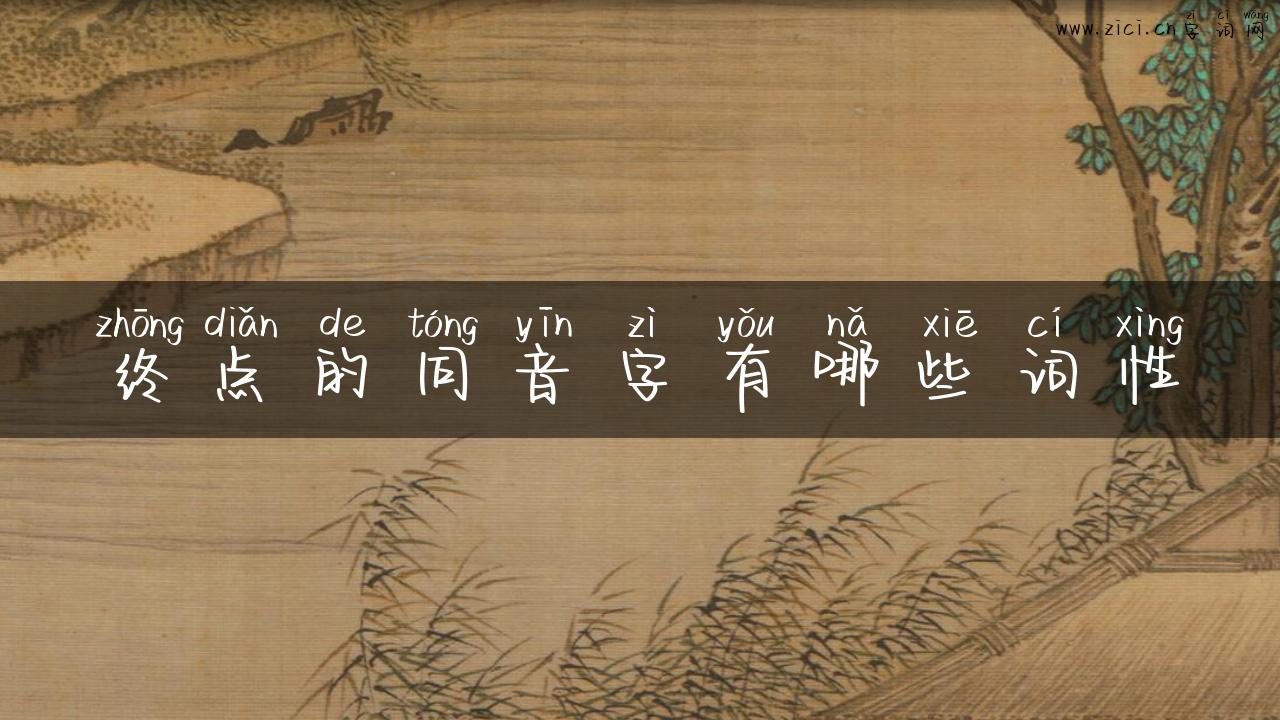 zì cí wǎng
www.zici.cn字词网
zhōng diǎn de tóng yīn zì yǒu nǎ xiē cí xìng
终点的同音字有哪些词性